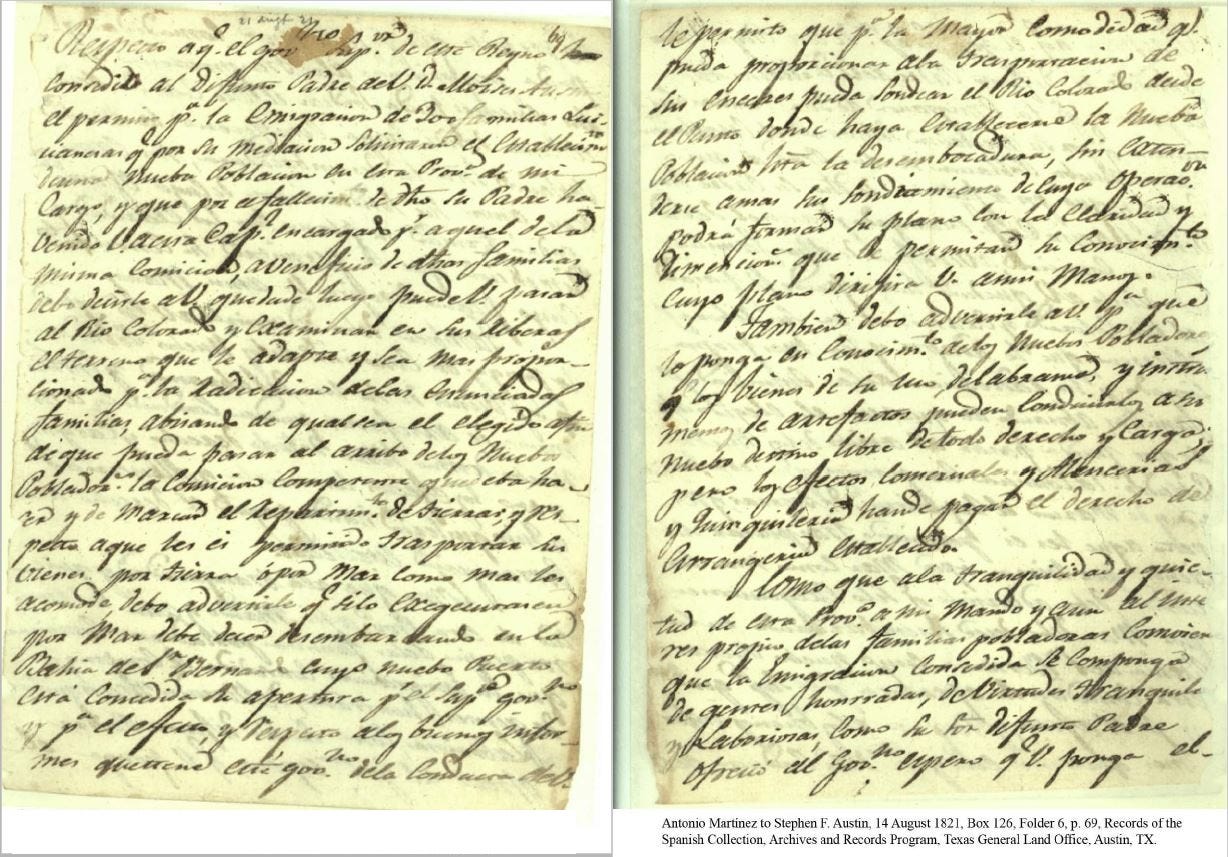 21 Augt 21
69
Respecto a q.e el gov.no Sup.or de este Reyno
consedio al difunto Padre de V. d. Moises Austin
el permiso p.a la Emigracion de 300 familias Lui-
cianesas q.e por su mediacion solicitaron el establecim.to
de una nueba Poblacion en esta Prov.a de mi
Cargo, y que por el fallecim.to de dho su Padre ha-
venido V. a esta Cap.l encargado p.r aquel de la
misma Comicion, a veneficio de dhas familias
debo decirle a V. que desde luego puede V. pasar
al Rio Colorado y Examinar en sus riberas
el terreno que le adapte y sea mas propor-
cionado p.a la radicacion de las enunciadas
familias, abisando de qual sea el elegido a fin
de que pueda pasar al arribo de los Nuebos
Poblador.s la Comicion Competente que deba ha-
cer y de Marcar el repartim.to de tierras, y res-
pecto a que les es permitido trasportar sus
vienes por tierra ó por Mar como mas les
acomode debo advertirle q.e si lo execcutasen
por Mar debe de ser desembarcando en la
Bahia de S.n Bernardo cuyo nuebo Puerto
está Concedida su apertura p.r el Sup.or gov.no
p.a el efecto, y respecto a los buenos infor-
mes que tiene este gov.no de la Conducta de V.
le permito que p.a la Mayor Comodidad q.e
pueda proporcionar a la trasportacion de
sus enceres pueda sondear el Rio Colorado desde
el Punto donde haya establecerse la Nueba
Poblacion hta la desembocadura, sin exten-
derse a mas sus sondiamientos de cuya operac.on
podrá formar su plano con la Claridad y
dimencion.s que le permitan su Conocim.to
cuyo plano dirijira V. a mis Manos.
Tambien debo advertirle a V. p.a que
lo ponga en Conocim.to de los Nuebos Pobladores
q.e los vienes de su uso, de labranza, y instru-
mentos de artefactos pueden Conducirlos a su
nuebo destino libre de todo derecho y Cargo;
pero los efectos Comerciales y Mencerias
y Quinquilleria han de pagar el derecho de
estrangeria establecido.
Como que a la tranquilidad y quie-
tud de esta Prov.a a mi Mando y aun al inte-
res propio de las familias pobladoras Comviene
que la Emigracion Consedida se Componga
de gentes honrradas, de Virtudes tranquilas
y Laboriosas como su S.or difunto Padre
Ofreció al Gov.no espero q.e V. ponga el-
Antonio Martínez to Stephen F. Austin, 14 August 1821, Box 126, Folder 6, p. 69, Records of the
Spanish Collection, Archives and Records Program, Texas General Land Office, Austin, TX.